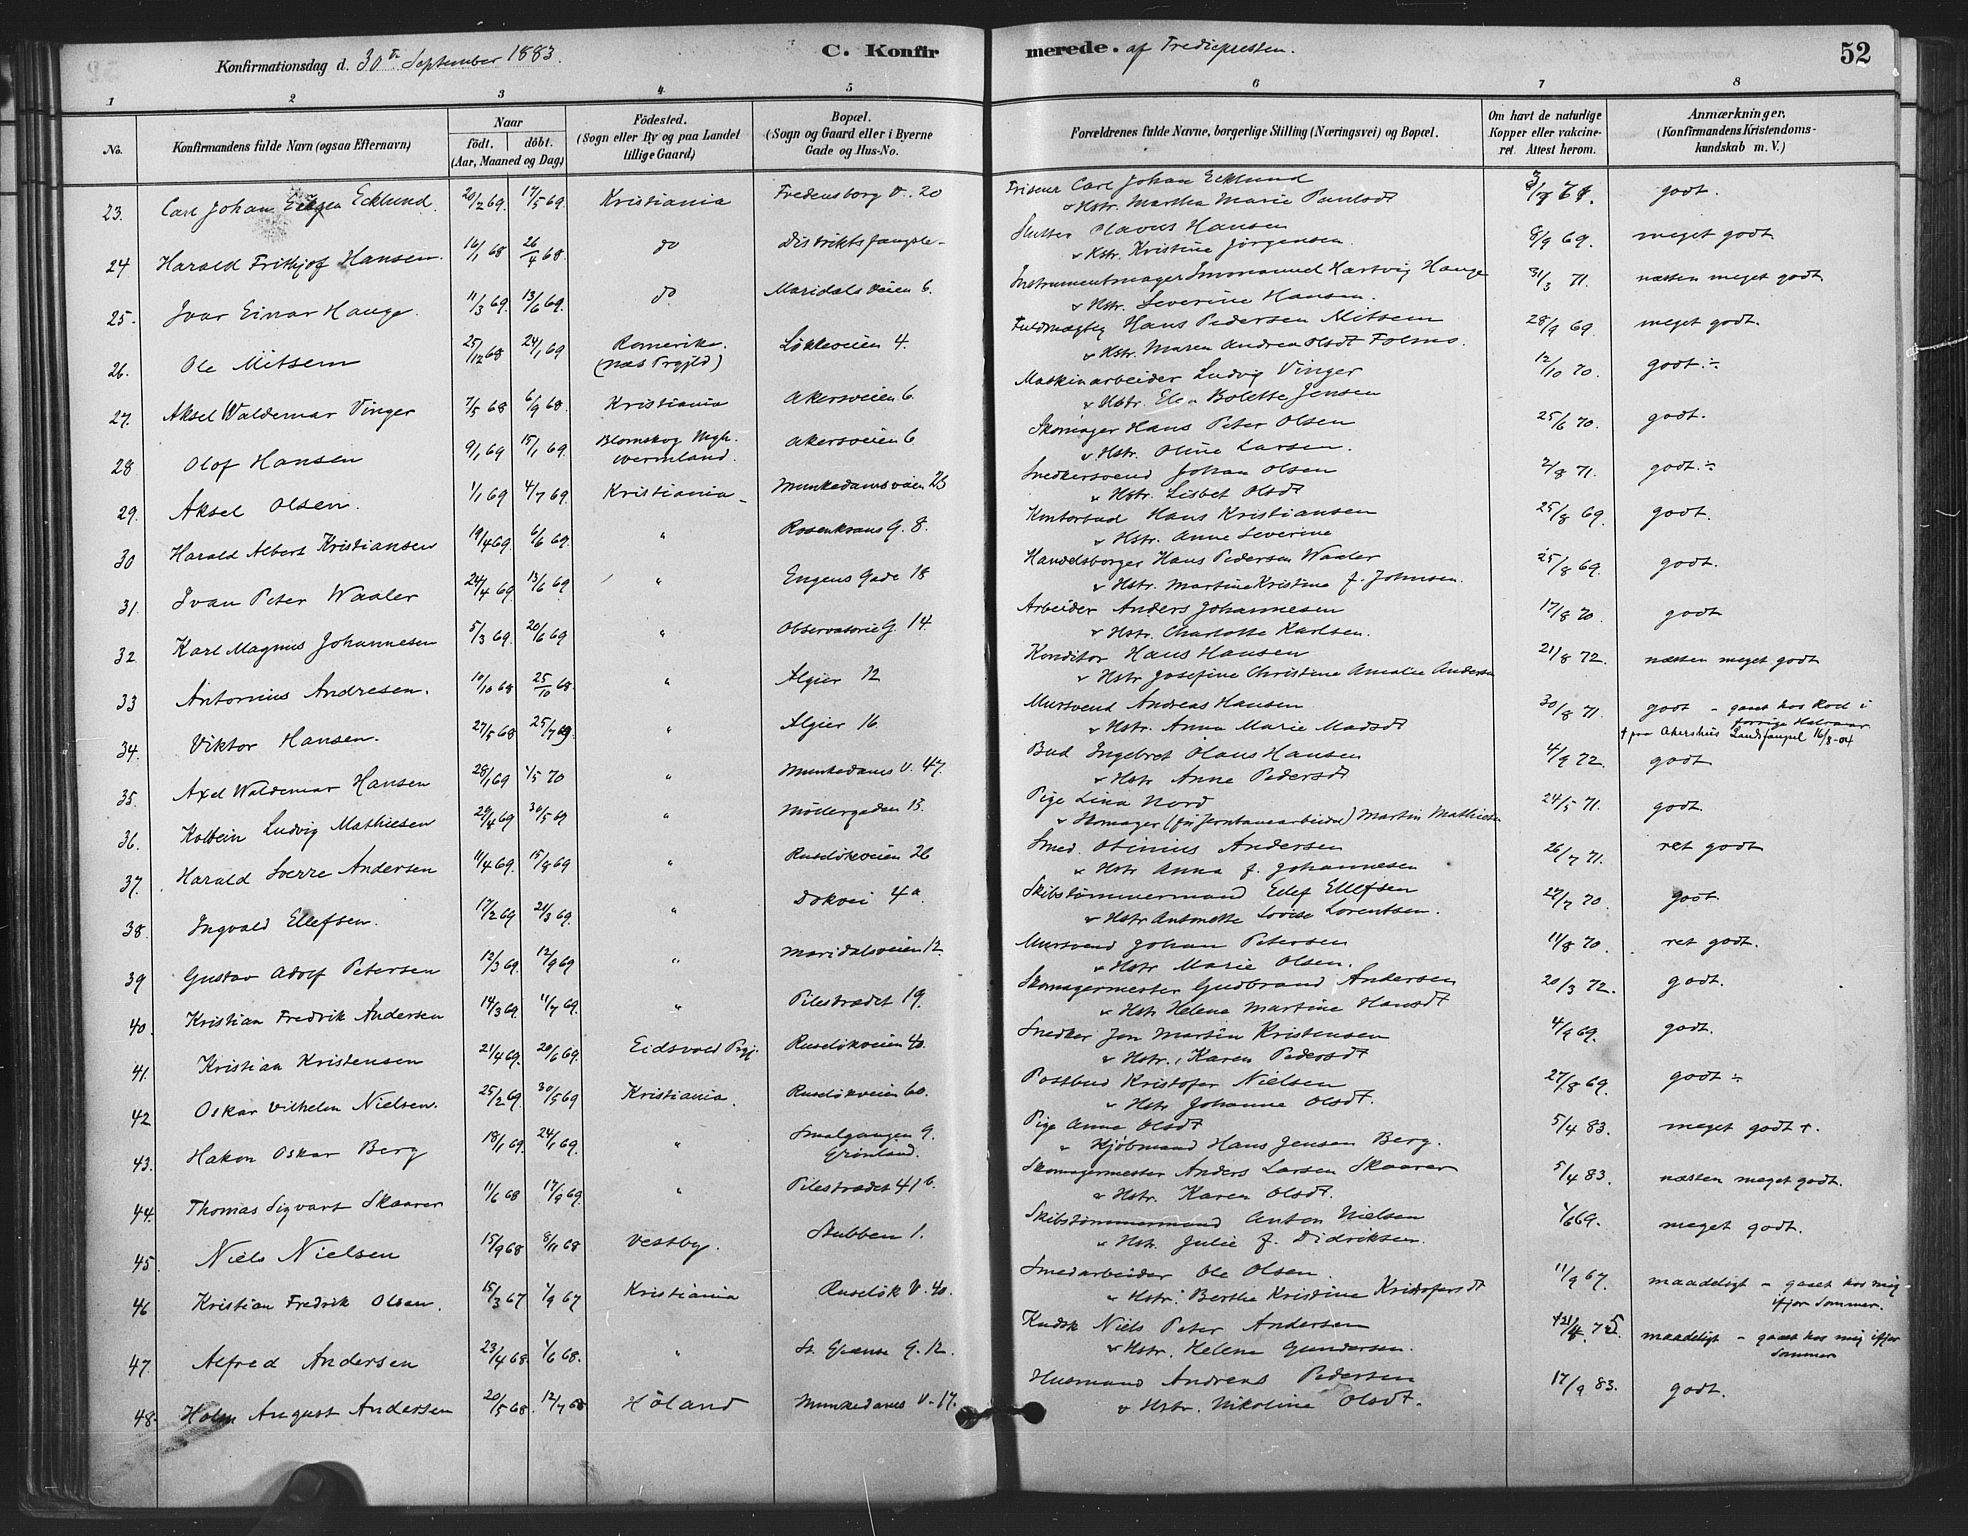 Konfirmationsdag d. 30te September 1883. C. Konfirmerede. af Trediepresten. 52
1 2 3 4 5 6 7 8
No. Konfirmandens fulde Navn (ogsaa Efternavn) Naar födt. döbt. (Aar, Maaned og Dag) Födested. (Sogn eller By og paa Landet tillige Gaard) Bopæl. (Sogn og Gaard eller i Byerne Gade og Hus-No. Forældrenes fulde Navne, borgerlige Stilling (Næringsvei) og Bopæl. Om havt de naturlige Kopper eller vakcineret. Attest herom. Anmærkninger. (Konfirmandens Kristendomskundskab m. V.)
23. Carl Johan Ecklund. 20/2 69. 17/5 69. Kristiania Fredensborg V. 20 Friseur Carl Johan Ecklund godt.
& Hstr. Martha Marie Paulsdt
24 Harald Frithjof Hansen. 16/1 68 26/4 68. do Distriktsfængsle- Slutter Olavus Hansen 8/9 69. meget godt
& Hstr. Kristine Jörgensen.
25. Ivar Einar Hauge. 11/3 69. 13/6 69. do Maridalsveien 6. Instrumentmager Immanuel Hartvig Hauge 31/3 71. næsten meget godt
& Hstr. Severine Hansen.
26. Ole Mitsem 25/12 68 24/1 69 Romerike. (Næs Prgjld) Lökkeveien 4. Fuldmægtig Hans Pedersen Mitsem 28/9 69. meget godt.
& Hstr. Maren Andrea Olsdt Folmo.
27. Aksel Waldemar Vinger 7/5 68 6/9 68. Kristiania Akersveien 6. Maskinarbeider Ludvig Vinger 12/10 70. godt.÷
& Hstr. Bolette Jensen
28 Olof Hansen 9/1 69 15/1 69. Blomskog Mgh. Wermland. Akersveien 6 Skomager Hans Peter Olsen 25/6 70. godt.
& Hstr. Oline Larsen.
29. Aksel Olsen. 1/1 69 4/7 69. Kristiania - Munkedamsveien 23 Snedkersvend Johan Olsen 2/8 71. godt.÷
& Hstr. Lisbet Olsdt
30 Harald Albert Kristiansen 19/4 69. 6/6 69. " Rosenkrans G. 8. Kontorbud Hans Kristiansen 25/8 69. godt.
& Hstr. Anne Severine
31. Ivan Peter Waaler 24/4 69. 13/6 69 " Engens Gade 18 Handelsborger Hans Pedersen Waaler 25/8 69. godt.
& Hstr. Martine Kristine f. Johnsen.
32 Karl Magnus Johannesen 5/3 69. 20/6 69 " Observatorie G. 14. Arbeider Anders Johannesen 17/8 70. godt
& Hstr. Charlotte Karlsen.
33 Antonius Andresen. 10/10 68 25/10 68. " Algier 12 Konditor Hans Hansen 21/8 72. næsten meget godt
& Hstr Josefine Christine Amalie Andersen
34. Viktor Hansen. 27/5 68 25/7 69. " Algier 16 Mursvend Andreas Hansen 30/8 71. godt - gaaet hos Kod i forrige Halvaar
& Hstr. Anna Marie Madsdt † paa Akershus Landsfængsel 16/8-04
35. Axel Waldemar Hansen 28/1 69 1/5 70 " Munkedams V. 47. Bud Ingebret Olaus Hansen 4/9 72. godt
& Hstr. Anne Pedersdt
36. Kolbein Ludvig Mathiesen 29/4 69 30/5 69 " Möllergaden 15. Pige Lina Nord 24/5 71. godt.
& Skomager Martin Mathiesen
37. Harald Sverre Andersen 11/4 69. 15/8 69 " Ruselökveien 26 Smed. Otinius Andersen 26/7 71. ret godt
& Hstr Anna f. Johannesen
38. Ingvald Ellefsen. 17/2 69 21/3 69. " Dokvei 4a Skibstömmermand Ellef Ellefsen 27/7 70. godt.
& Hstr Antonette Lovise Lorentsen.
39 Gustav Adolf Petersen 12/3 69. 12/9 69 " Maridalsveien 12. Mursvend Johan Petersen 11/8 70. ret godt.
& Hstr Marie Olsen.
40. Kristian Fredrik Andersen 14/3 69. 11/7 69. " Pilestrædet 19. Skomagermester Gudbrand Andersen 20/3 72. godt.
& Hstr Helene Martine Hansdt
41. Kristian Kristensen 21/4 69. 20/6 69. Eidsvold Prgj. Ruselökveien 40. Snedker Jon Martin Kristensen 4/9 69. godt.
& Hstr. Karen Pedersdt
42 Oskar Vilhelm Nielsen. 25/2 69. 30/5 69 Kristiania. Ruselökveien 60. Postbud Kristofer Nielsen 27/8 69. godt÷
& Hstr Johanne Olsdt.
43. Hakon Oskar Berg 18/1 69. 24/1 69. " Smalgangen 9. Grönland. Pige Anne Olsdt 5/4 83. meget godt +.
& Kjöbmand Hans Jensen Berg.
44. Thomas Sigvart Skaarer 11/6 68 17/9 69. " Pilestrædet 41 b. Skomagermester Anders Larsen Skaarer 5/4 83. næsten meget godt.
& Hstr. Karen Olsdt.
45. Niels Nielsen 15/9 68 8/11 68 Vestby. Stubben 1. Skibstömmermand Anton Nielsen 1/6 69. meget godt.
& Hstr. Julie f. Didriksen.
46 Kristian Fredrik Olsen. 15/3 67 1/9 67 Kristiania Ruselök V. 40. Smedarbeider Ole Olsen. 11/9 67. maadeligt - gaaet hos mig ifjor Sommer.
& Hstr. Berthe Kristine Kristofersdt
47. Alfred Andersen 23/4 68. 1/6 68. " G. 12. Kudsk Niels Peter Andersen maadeligt - gaaet hos mig ifjor Sommer
& Hstr. Helene Gundersen.
48. Holm August Andersen 20/5 68. 12/7 68 Höland Munkedams V. 17. Husmand Andreas Pedersen 17/9 83. godt.
& Hstr. Nikoline Olsdt.